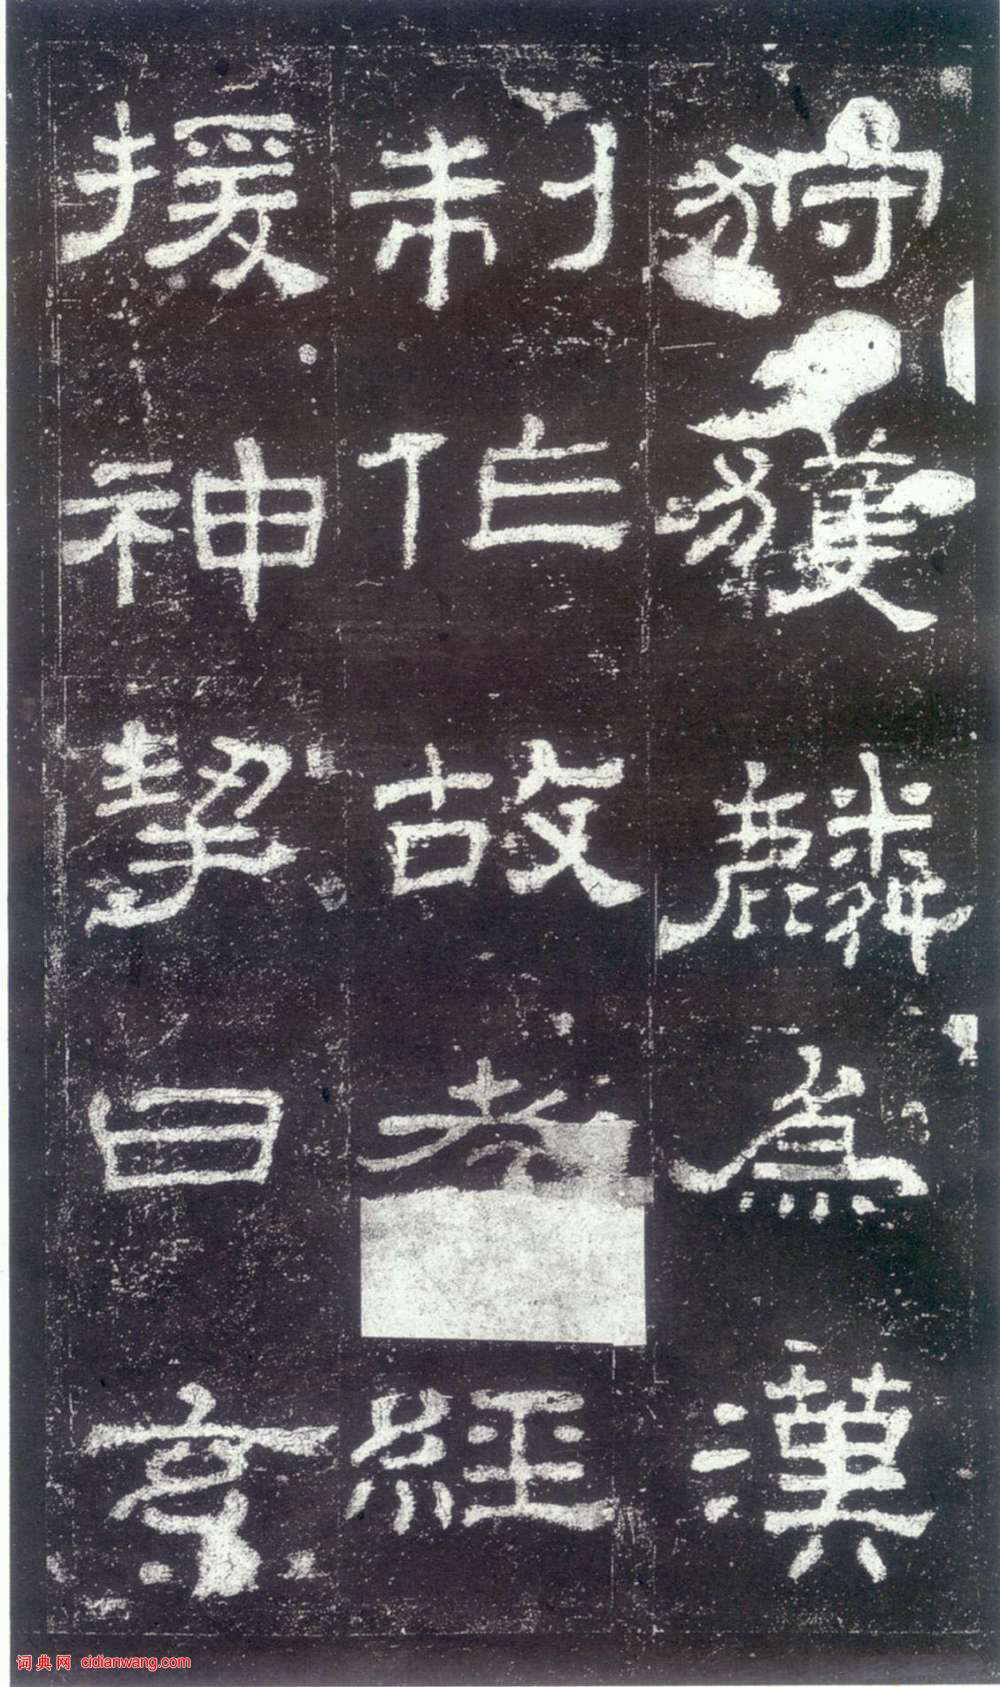 狩獲麟為漢
制作故孝經
援神挈曰玄
词典网 cidianwang.com